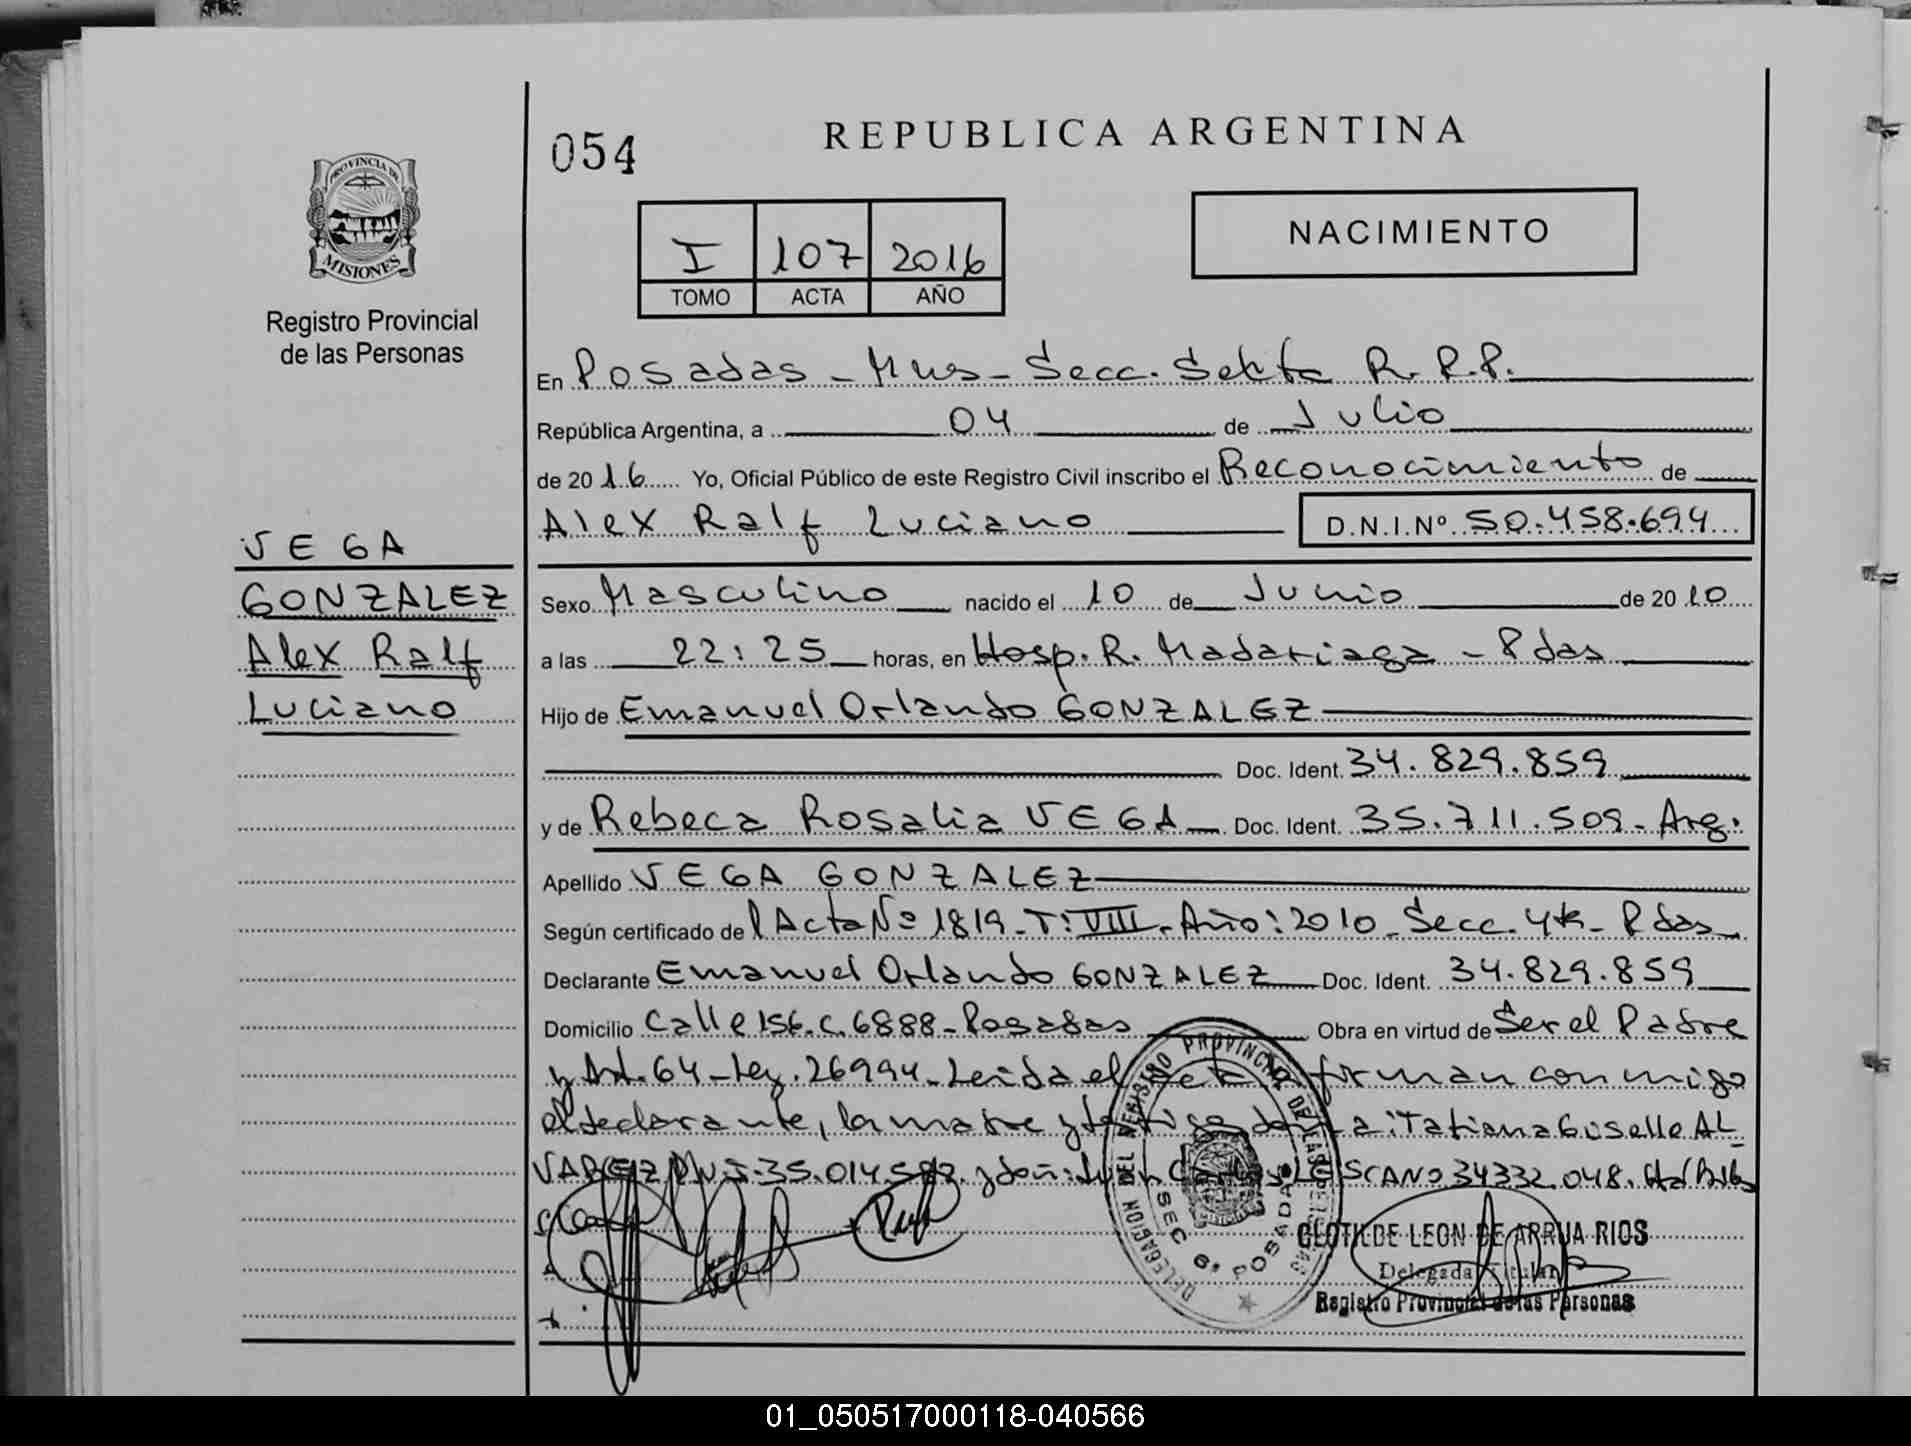 054
REPUBLICA ARGENTINA
PROVINCIA DE
MISIONES
Registro Provincial
de las Personas
I 107 2016
TOMO ACTA AÑO
NACIMIENTO
En Posadas - Mnes - Secc. Sexta R. P. P.
República Argentina, a 04 de Julio
de 2016 Yo, Oficial Público de este Registro Civil inscribo el Reconocimiento de
Alex Ralf Luciano D.N.I.Nº 50.458.694
VEGA
GONZALEZ
Alex Ralf
Luciano
Sexo Masculino nacido el 10 de Junio de 2010
a las 22:25 horas, en Hosp. R. Madariaga - Pdas
Hijo de Emanuel Orlando GONZALEZ
Doc. Ident. 34.829.859
y de Rebeca Rosalia VEGA Doc. Ident. 35.711.509 - Arg.
Apellido VEGA GONZALEZ
Según certificado de l Acta Nº 1819 - T: VIII - Año: 2010 - Secc. 4ta - Pdas
Declarante Emanuel Orlando GONZALEZ Doc. Ident. 34.829.859
Domicilio Calle 156. C. 6888 - Posadas Obra en virtud de Ser el Padre
y Art. 64 - Ley. 26994 - Leida el acta firman conmigo
el declarante, la madre y testigos Tatiana Giselle AL
VAREZ D.N.I. 35.014.582 y don: Juan LESCANO 34332.048.
DELEGACION DEL REGISTRO PROVINCIAL DE LAS PERSONAS
SEC 6º POSADAS
CLOTILDE LEON DE ARRUA RIOS
Delegada Titular
Registro Provincial de las Personas
01_050517000118-040566